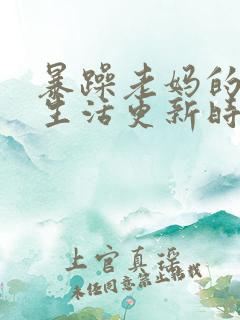 暴躁老妈的
生活更新时
上官真瑶
未经同意禁止转载